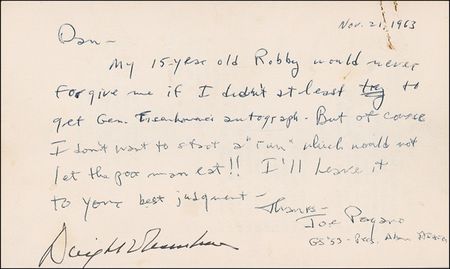 Nov. 21, 1963
Dan —
My 15-year old Robby would never
forgive me if I didn't at least try to
get Gen. Eisenhower's autograph. But of course
I don't want to start a "run" which would not
let the poor man eat!! I'll leave it
to your best judgment —
Thanks —
Joe
GS'53-
Dwight D Eisenhower